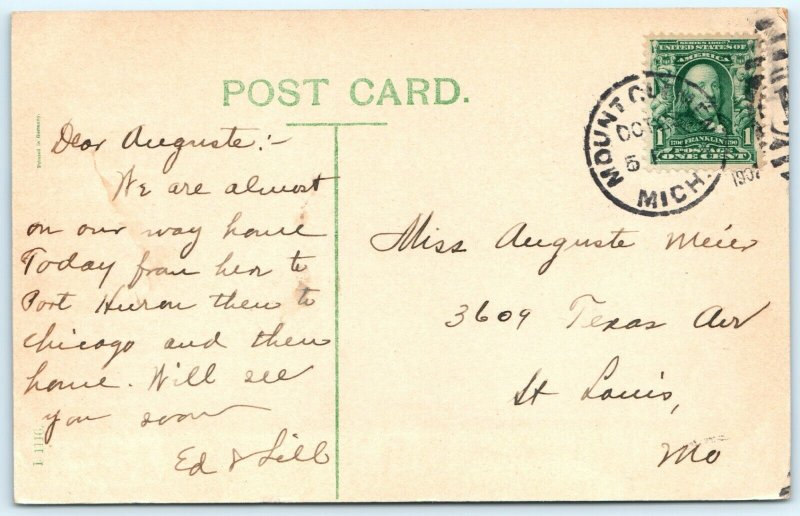 POST CARD.
Printed in Germany.
Dear Auguste:-
We are almost
on our way home
Today from here to
Port Huron then to
Chicago and then
home. Will see
you soon
Ed & Lill
Miss Auguste Meier
3609 Texas Av
St Louis,
Mo
MOUNT CLEMENS
OCT
5
MICH.
1907
SERIES 1902
UNITED STATES OF
AMERICA
1706 FRANKLIN 1790
1 POSTAGE 1
ONE CENT